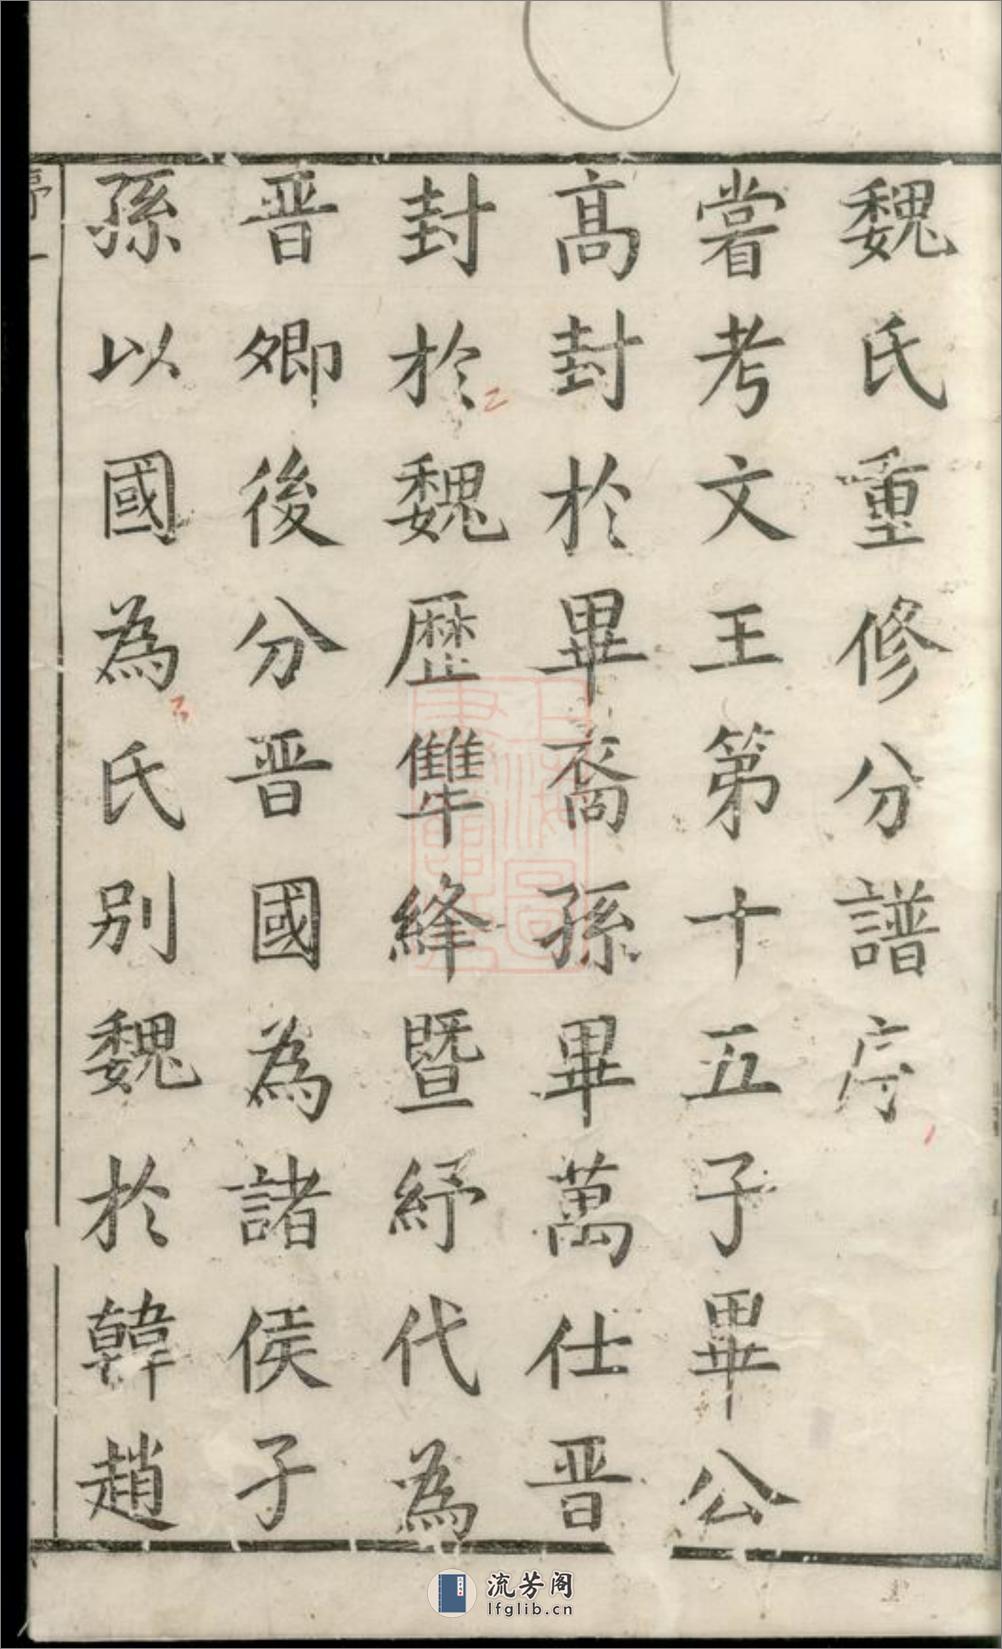 魏氏重修分譜序
嘗考文王第十五子畢公
髙封於畢裔孫畢萬仕晋
封於魏歷犨絳暨紓代為
晋卿後分晋國為諸侯子
孫以國為氏别魏於韓趙
序一
流芳阁
lfglib.cn